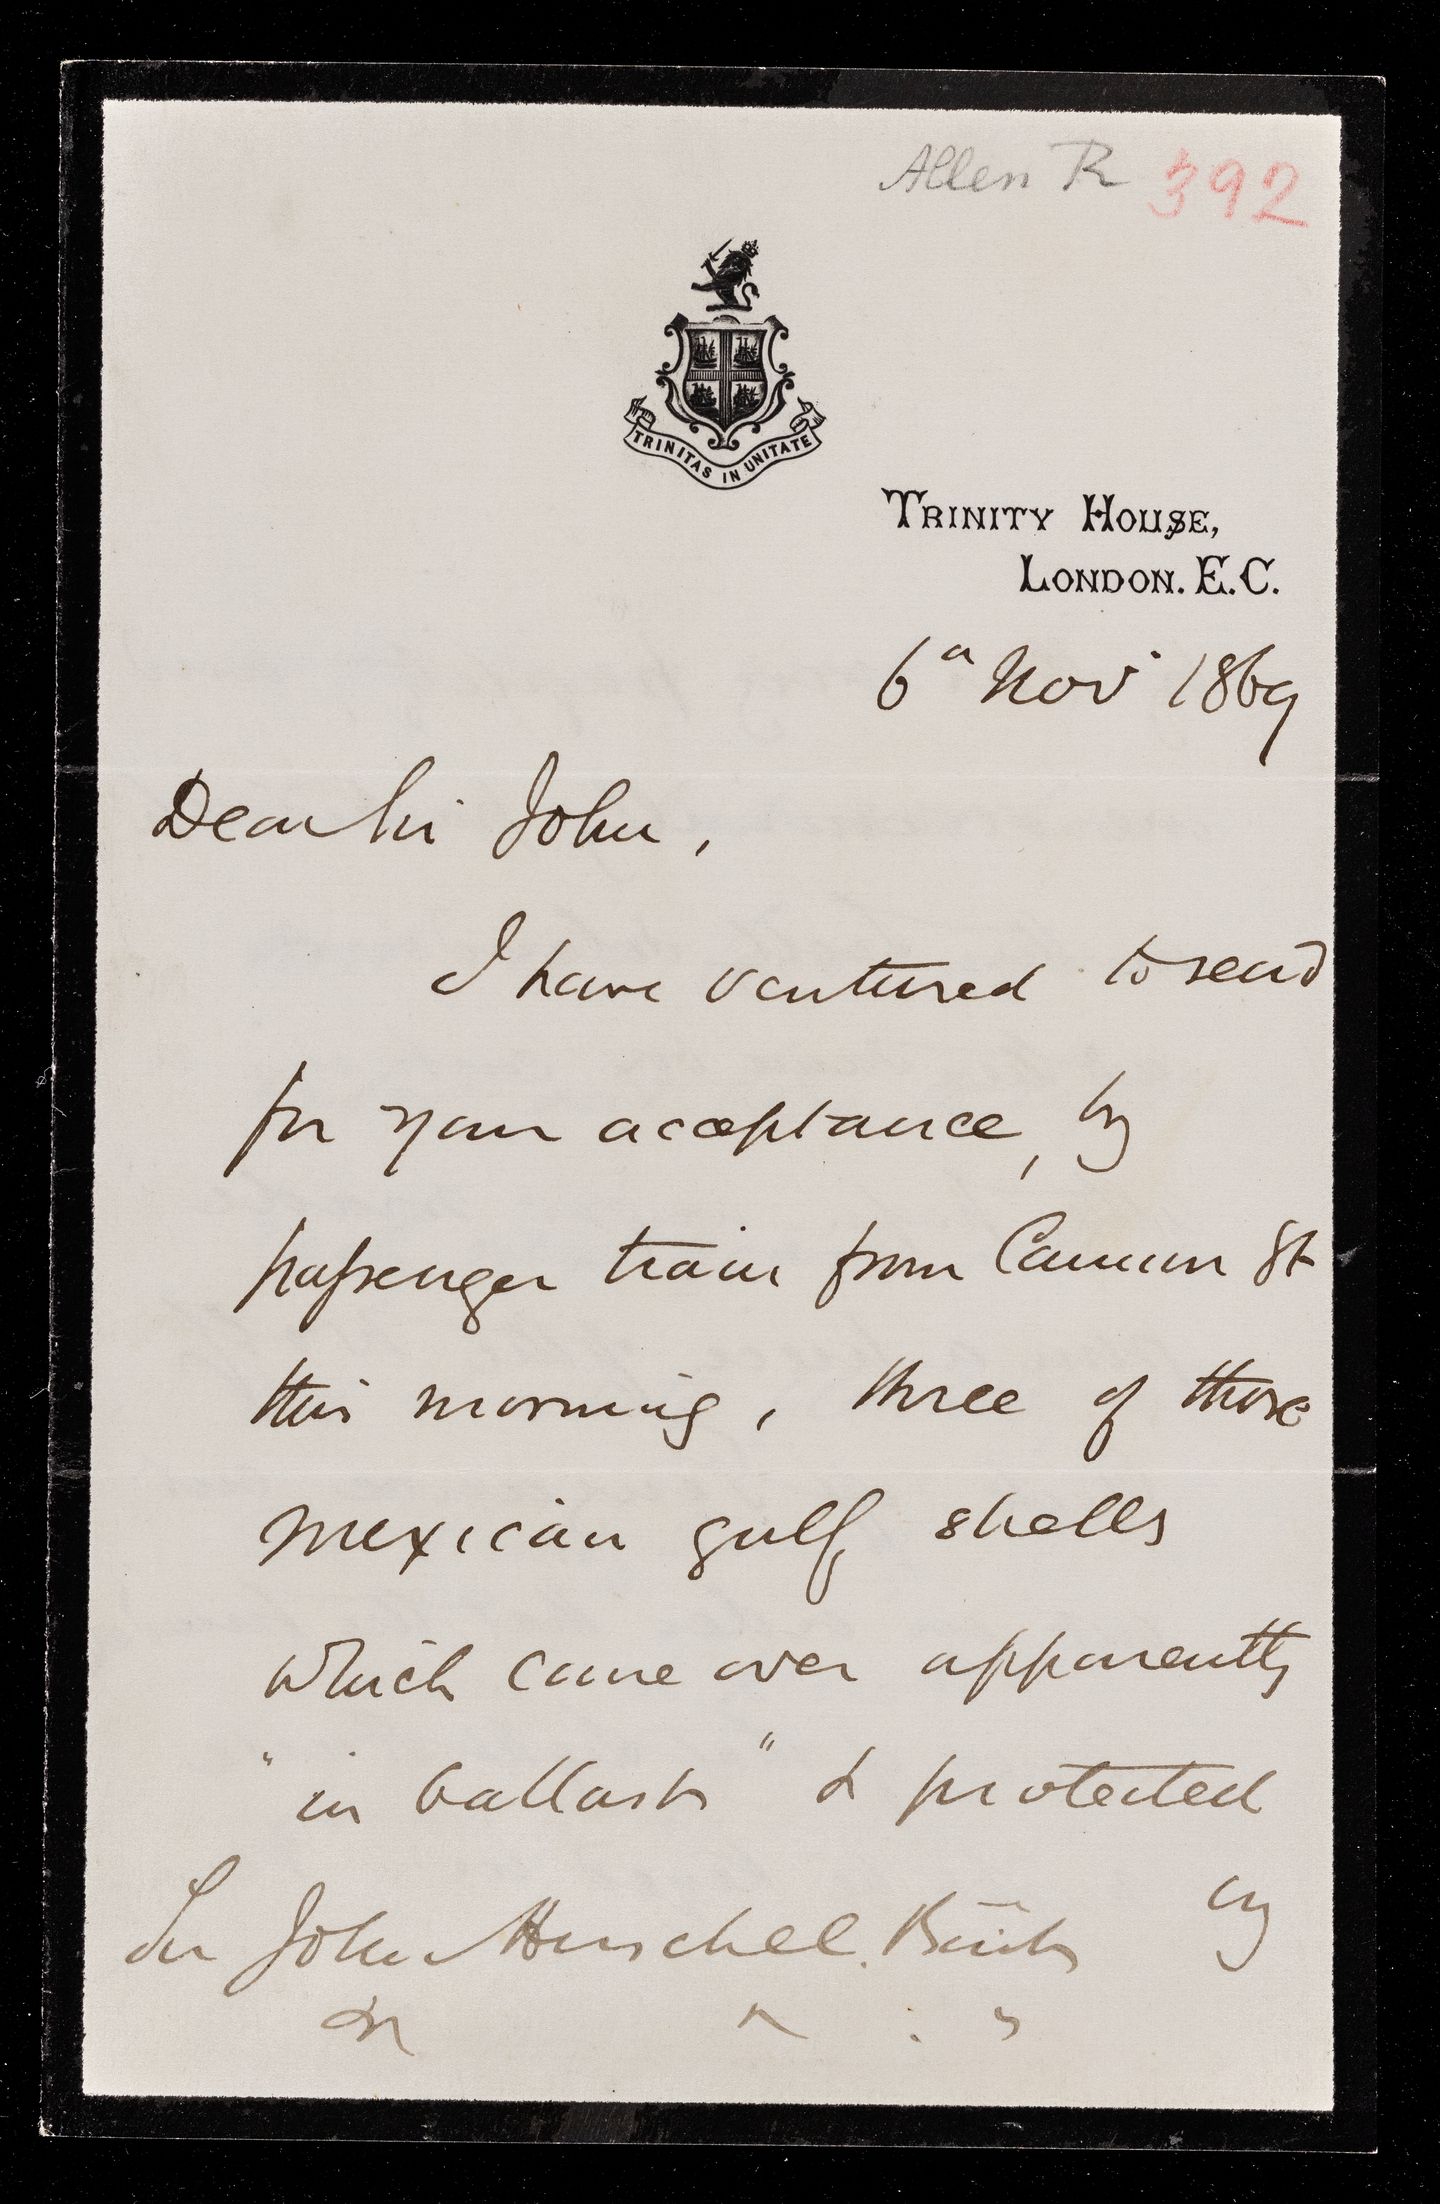 Allen R 392
TRINITAS IN UNITATE
TRINITY HOUSE,
LONDON. E.C.
6th Nov 1869
Dear Sir John,
I have ventured to send
for your acceptance, by
passenger train from Cannon St
this morning, three of those
mexican gulf shells
which came over apparently
"in ballast" & protected
by
Sir John Herschel. Bart
&c " : "